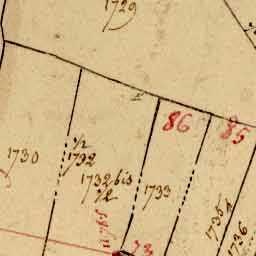 1729
86
85
1730
1/2
1732
1732 bis
1/2
1733
1735
1736
73